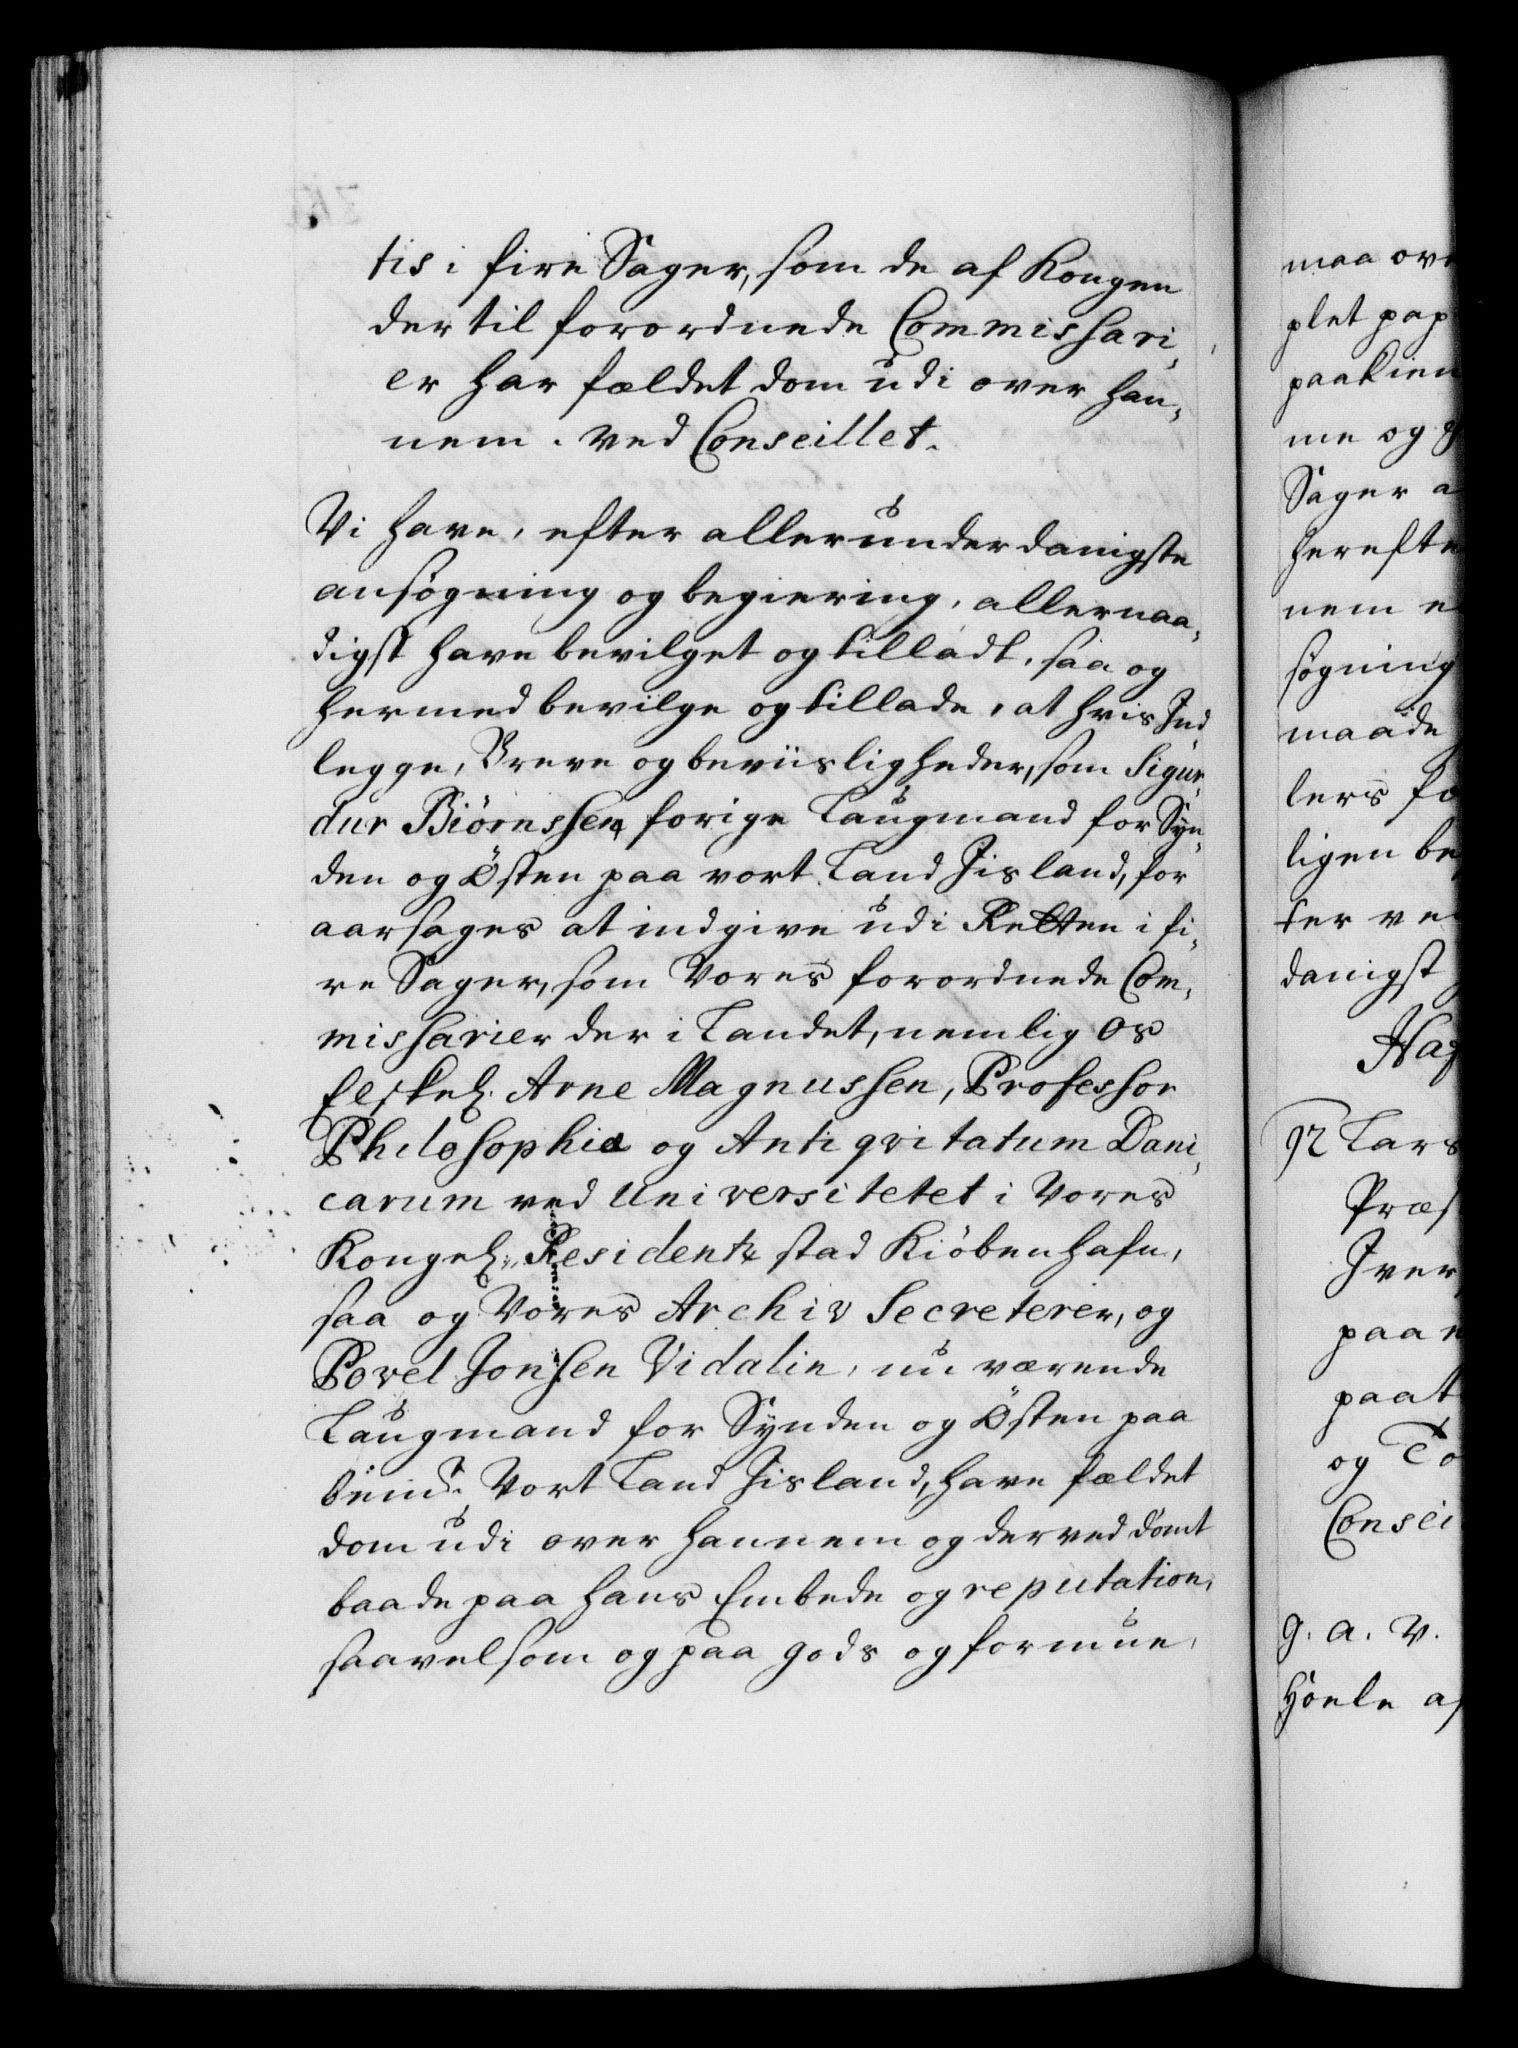 tis i fire Sager, som de af Kongen
der til forordnede Commissari,
er har fældet dom udi over han,
nem. ved Conseillet.
Vi have, efter allerunderdanigste
ansøgning og begiering, allernaa,
digst have bevilget og tilladt, saa og
hermed bevilge og tillade, at hvis Ind
legge, Breve og beviisligheder, som Sigur,
dur Biørnssen, forige Laugmand for Syn,
den og Østen paa vort Land Iisland, for
aarsages at indgive udi Retten i fi,
re Sager, som Vores forordnede Com,
missarier der i Landet, nemlig Os
Elskel. Arne Magnussen, Professor
Philosophiæ og Antiqvitatum Dani,
carum ved Universitetet i Vores
Kongel. Residentz stad Kiöbenhafn,
saa og Vores Archiv Secreterer, og
Povel Jonssen Vidalin, nu værende
Laugmand for Synden og Østen paa
bemte. Vort Land Iisland, have fældet
dom udi over hannem og derved dömt
baade paa hans Embede og reputation,
saavelsom og paa gods og formue,
maa ov
plet pap
paakien
me og
Sager a
herefte
nem e
søgning
maade
lers fo
ligen be
ter ve
danigst
Hag
Lars
Præs
Iver
paa
paat
og To
Consei
G. A. V.
Höele af